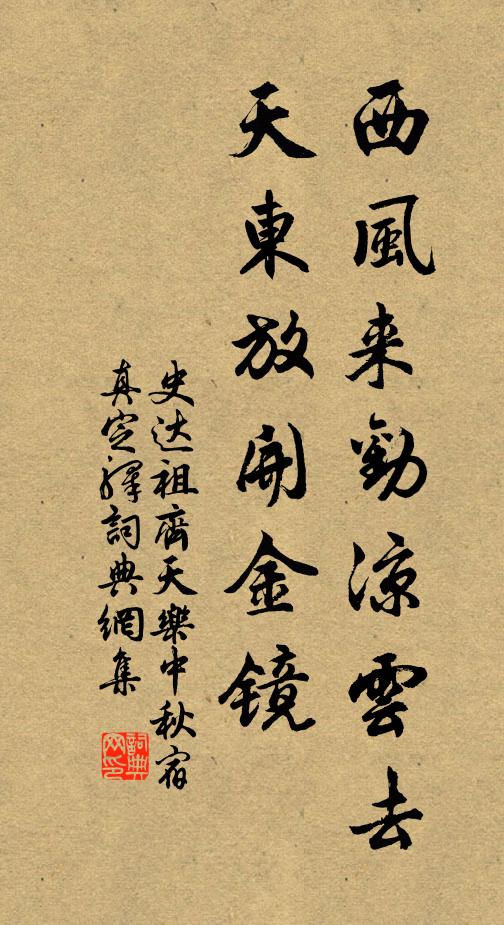 西風来勸涼雲去
天東放開金镜
史达祖齊天樂中秋宿
真定驛詞典網集
詞典网印